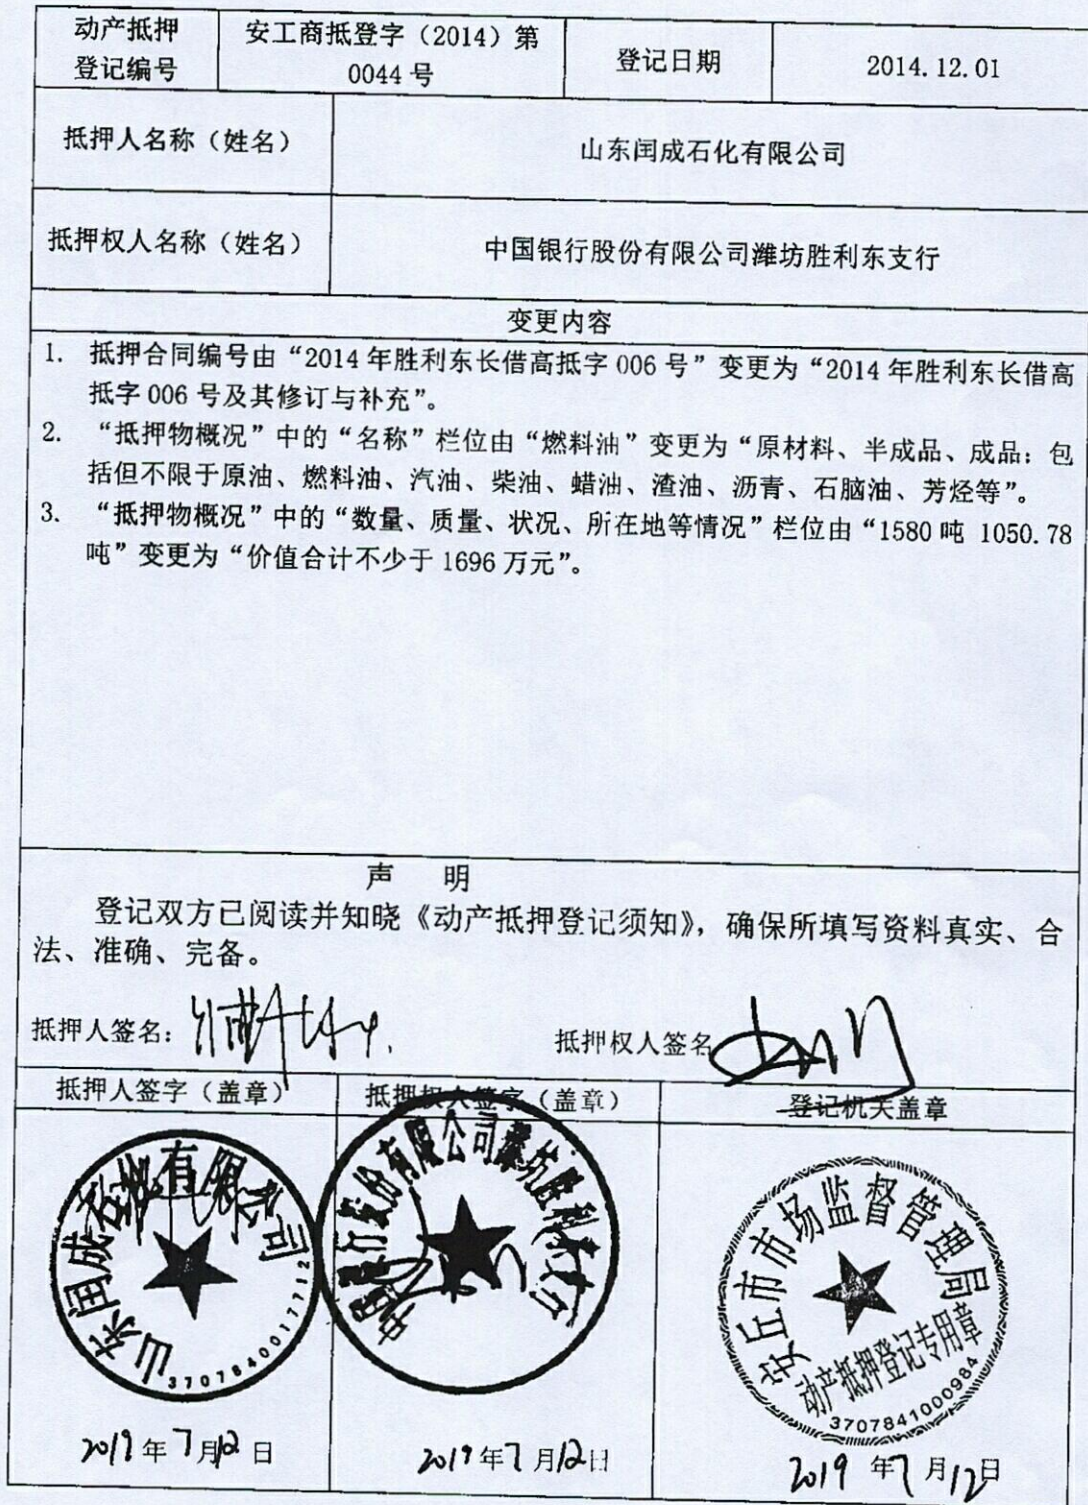 动产抵押
登记编号
安工商抵登字（2014）第
0044 号
登记日期
2014.12.01
抵押人名称（姓名）
山东闰成石化有限公司
抵押权人名称（姓名）
中国银行股份有限公司潍坊胜利东支行
变更内容
1. 抵押合同编号由“2014 年胜利东长借高抵字 006 号”变更为“2014 年胜利东长借高
抵字 006 号及其修订与补充”。
2. “抵押物概况”中的“名称”栏位由“燃料油”变更为“原材料、半成品、成品：包
括但不限于原油、燃料油、汽油、柴油、蜡油、渣油、沥青、石脑油、芳烃等”。
3. “抵押物概况”中的“数量、质量、状况、所在地等情况”栏位由“1580 吨 1050.78
吨”变更为“价值合计不少于 1696 万元”。
声 明
登记双方已阅读并知晓《动产抵押登记须知》，确保所填写资料真实、合
法、准确、完备。
抵押人签名：
抵押权人签名
抵押人签字（盖章）
抵押权人签字（盖章）
登记机关盖章
山东闰成石化有限公司
3707840017712
中国银行股份有限公司潍坊胜利东支行
安丘市市场监督管理局
动产抵押登记专用章
3707841000984
2019 年 7 月 12 日
2019 年 7 月 12 日
2019 年 7 月 12 日